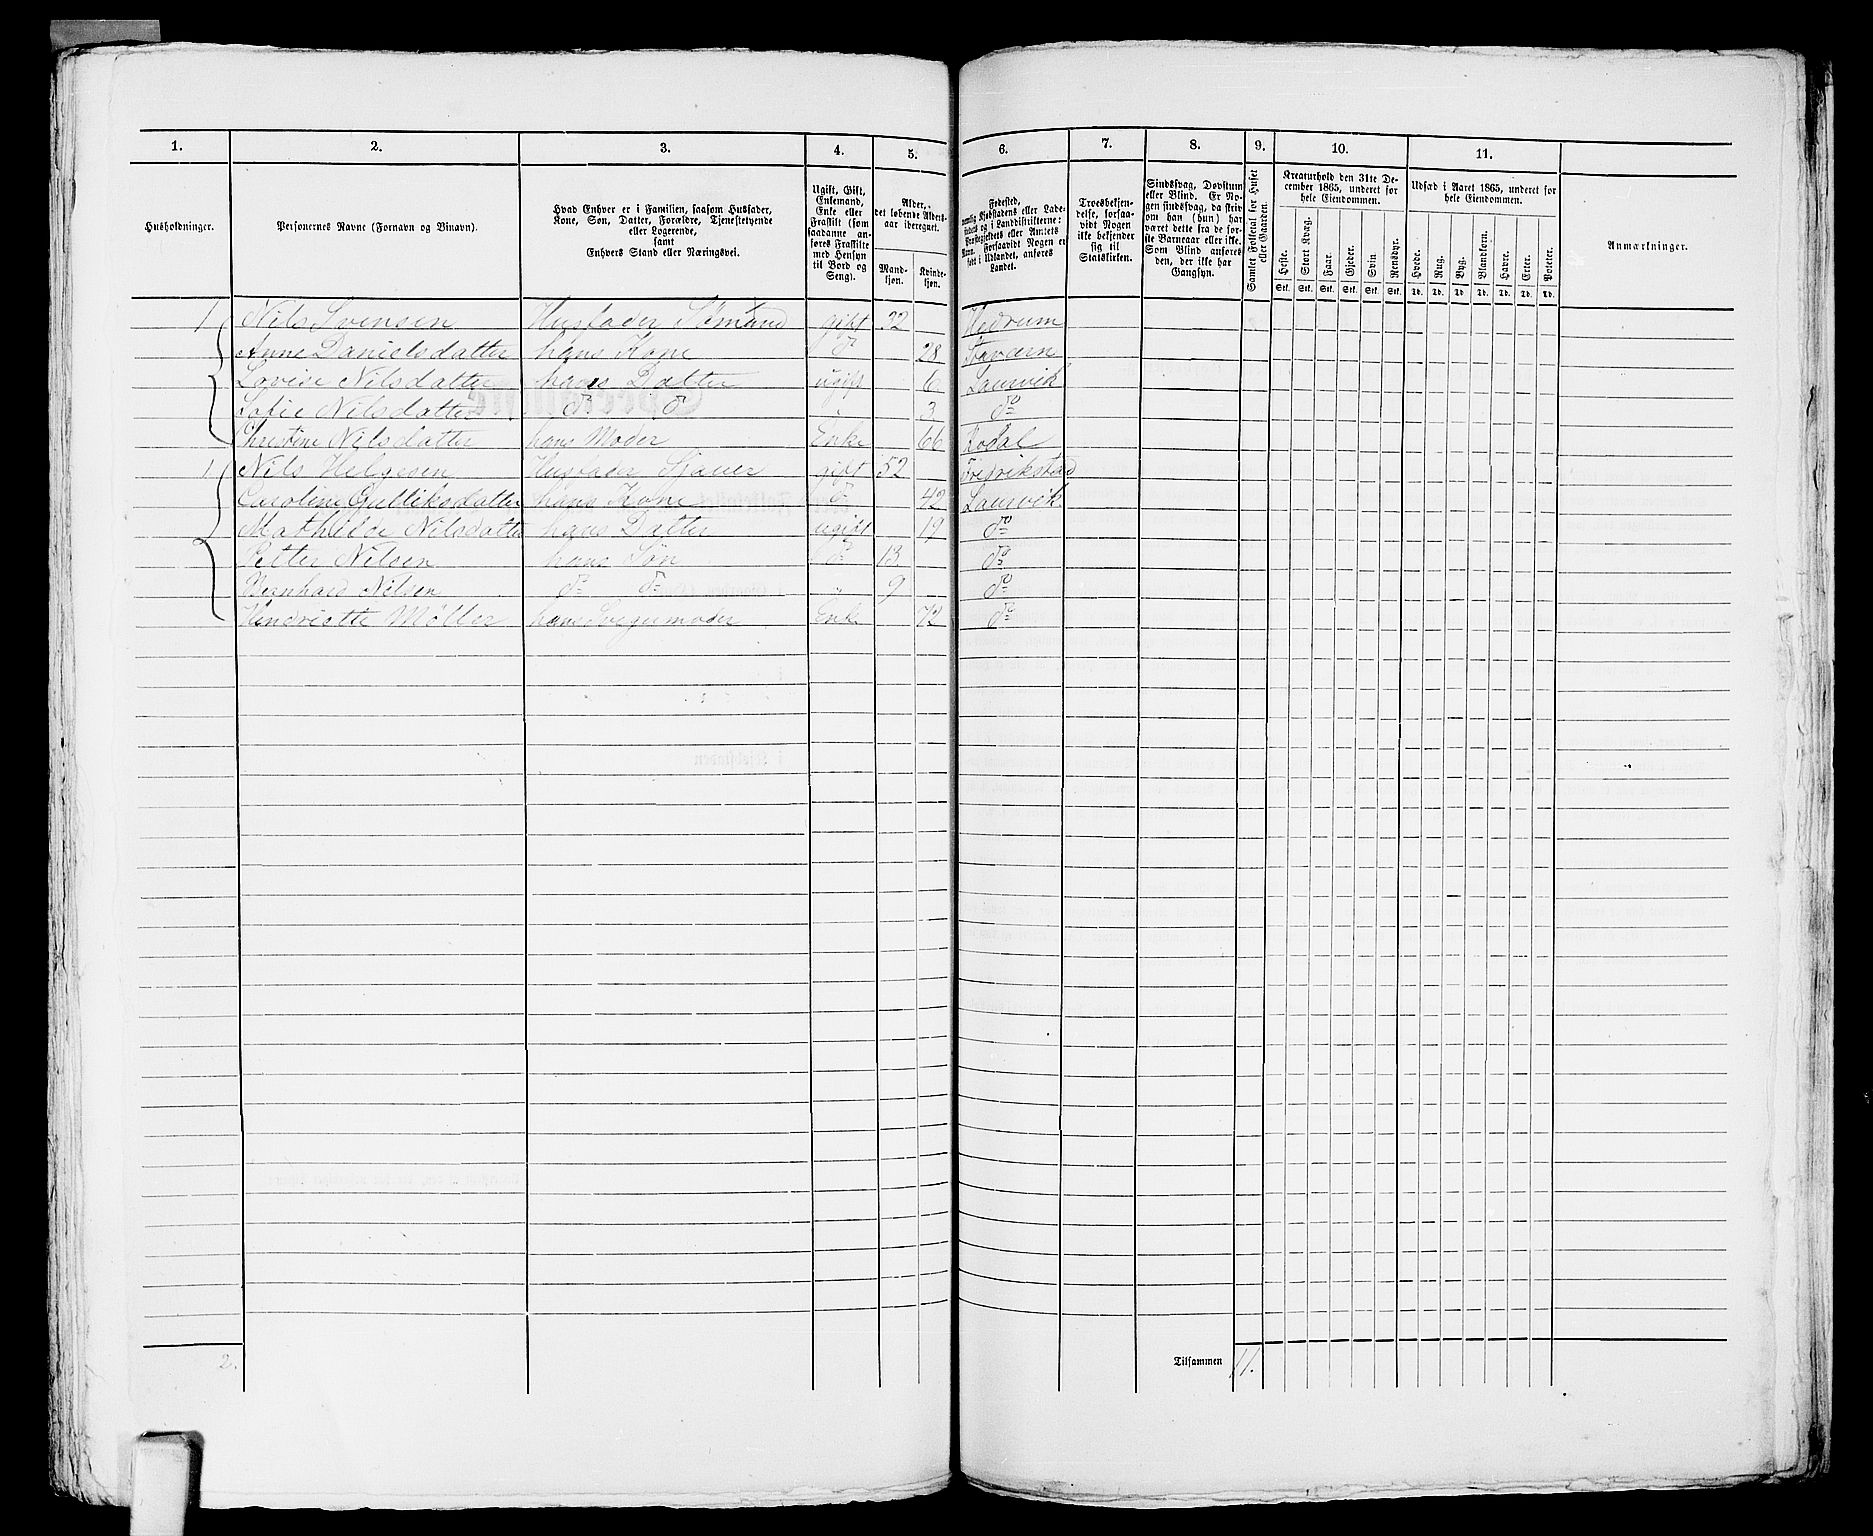 1. 2. 3. 4. 5. 6. 7. 8. 9. 10. 11.
Husholdninger.
Personernes Navne (Fornavn og Binavn).
Hvad Enhver er i Familien, saasom Husfader,
Kone, Søn, Datter, Forældre, Tjenestetyende
eller Logerende,
samt
Enhvers Stand eller Næringsvei.
Ugift, Gift,
Enkemand,
Enke eller
Fraskilt (som
saadanne an-
føres Fraskilte
med Hensyn
til Bord og
Seng).
Alder,
det løbende Alders-
aar iberegnet.
Mand-
kjøn.
Kvinde-
kjøn.
Fødested,
nemlig Kjøbstadens eller Lade-
stedets og i Landdistrikterne:
Præstegjeldets eller Amtets
Navn. Forsaavidt Nogen er
født i Udlandet, anføres
Landet.
Troesbekjen-
delse, forsaa-
vidt Nogen
ikke bekjender
sig til
Statskirken.
Sindssvag, Døvstum
eller Blind. Er No-
gen sindssvag, da skriv
om han (hun) har
været dette fra de før-
ste Barneaar eller ikke.
Som Blind anføres
den, der ikke har
Gangsyn.
Samlet Folketal for Huset
eller Gaarden.
Kreaturhold den 31te De-
cember 1865, underet for
hele Eiendommen.
Heste. Stort Kvæg. Faar. Gjeder. Svin. Rensdyr.
Stk. Stk. Stk. Stk. Stk. Stk.
Udsæd i Aaret 1865, underet for
hele Eiendommen.
Hvede. Rug. Byg. Blandkorn. Havre. Erter. Poteter.
Td. Td. Td. Td. Td. Td. Td.
Anmærkninger.
1 Nils Svensen Husfader Sømand gift 32 Hedrum
Anne Danielsdatter hans Kone do 28 Stavern
Lovise Nilsdatter hans Datter ugift 6 Laurvik
Sofie Nilsdatter do do " 3 do
Christine Nilsdatter hans Moder Enke 66 Kodal
1 Nils Helgesen Husfader Sjauer gift 52 Fredrikstad
Caroline Gulliksdatter hans Kone do 42 Laurvik
Mathilde Nilsdatter hans Datter ugift 19 do
Petter Nilsen hans Søn do 13 do
Bernhard Nilsen do do " 9 do
Hendriette Møller hans Svigermoder Enke 72 do
2. Tilsammen 11.